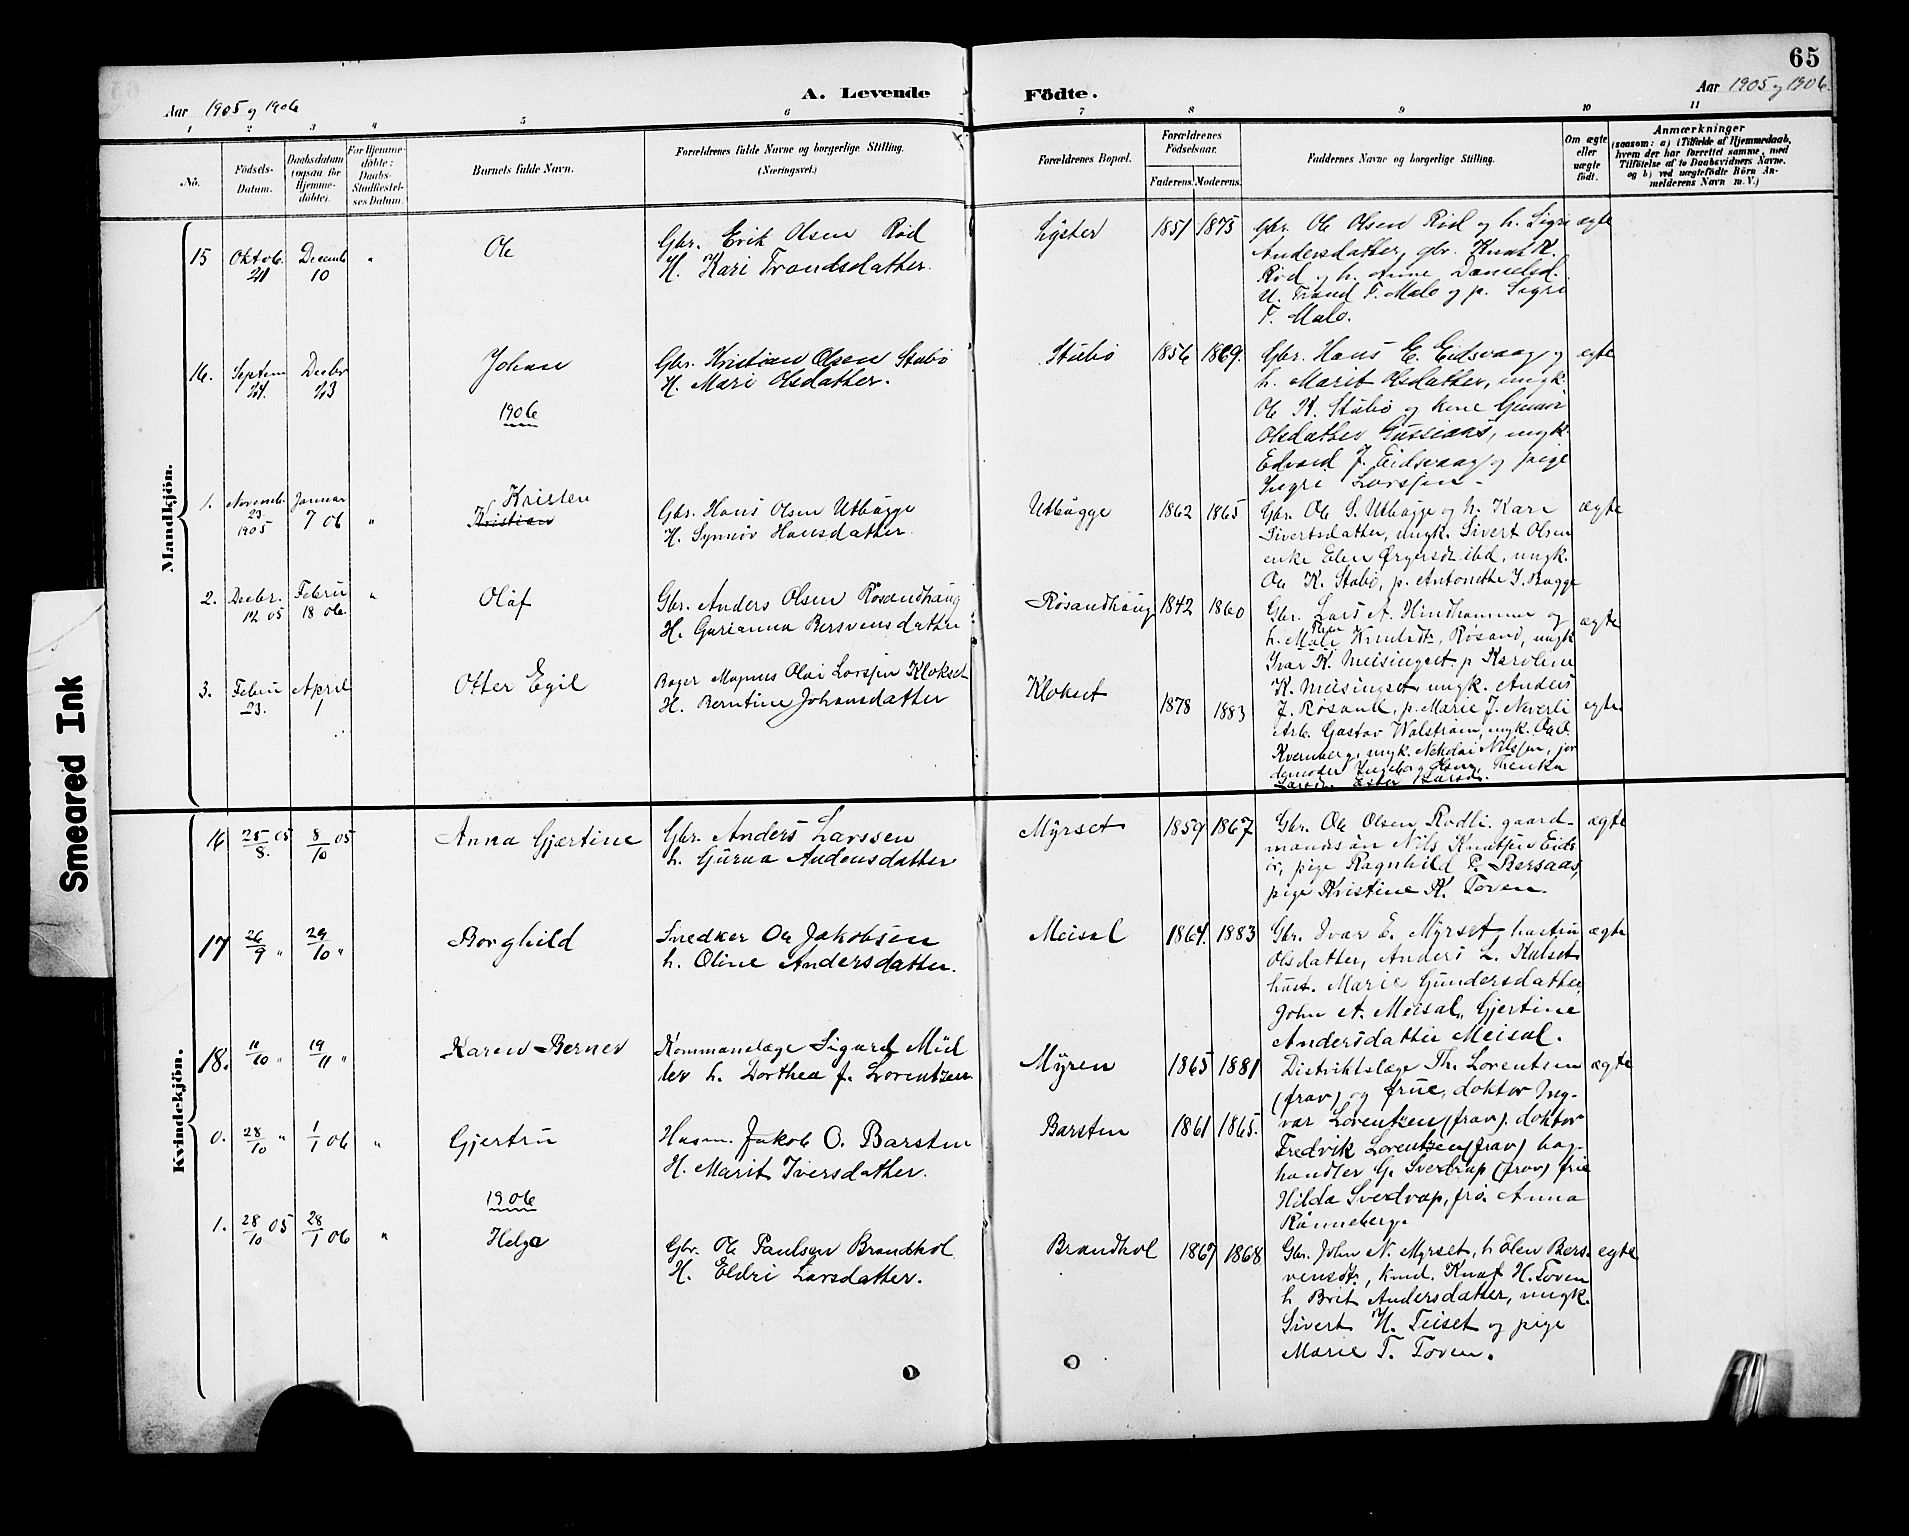 65
Aar 1905 og 1906
A. Levende Födte.
Aar 1905 og 1906.
1 2 3 4 5 6 7 8 9 10 11
No.
Födsels-Datum.
Daabsdatum (ogsaa for Hjemme-döbte).
For Hjemme-döbte: Daabs-Stadfæstel-ses Datum.
Barnets fulde Navn.
Forældrenes fulde Navne og borgerlige Stilling.
(Næringsvei.)
Forældrenes Bopæl.
Forældrenes Födselsaar.
Faderens. Moderens.
Faddernes Navne og borgerlige Stilling.
Om ægte eller uægte födt.
Anmærkninger
(saasom: a) i Tilfælde af Hjemmedaab,
hvem der har forrettet samme, med
Tilföielse af to Daabsvidners Navne.
og b) ved uægtefödte Börn An-
melderens Navn m. V.)
Mandkjön.
15 Oktob. 21 Decemb 10 " Ole
Gbr. Erik Olsen Rød
H. Kari Trondsdatter.
Lyster 1851 1875
Gbr. Ole Olsen Rød og h. Sigri
Andersdatter, gbr. Knut K.
Rød og h. Anne Danielsd.
U. Trond T. Malo og p. Sigri
T. Malo.
ægte
16. Septem 24. Decbr 23 Johan
Gbr. Kristian Olsen Stubø
H. Mari Olsdatter.
Stubø 1856 1869.
Gbr. Hans E. Eidsvaag og
h. Marit Olsdatter, ungk.
Ole K. Stubø og kone Gunnor
Olsdatter Gussiaas, ungk.
Edvard J. Eidsvaag og pige
Sigri Larsjen.
egte
1906
1. Novemb. 23. 1905 Januar 7 06 " Kristen
Kristian
Gbr. Hans Olsen Utbugge
H. Synnøv Hansdatter.
Utbugge 1862 1865
Gbr. Ole S. Utbugge og h. Kari
Sivertsdatter, ungk. Sivert Olsen
enke Elen Ørgersdt ibd, ungk.
Ole K. Stubø, p. Antonette J. Bugge
ægte
2. Decbr. 12 05 Febru 18 06 " Olaf
Gbr. Anders Olsen Røsandhaug
H. Gurianna Bersvensdatter
Røsandhaug 1842 1860
Gbr. Lars A. Hindhammer og
h. Mali Knutsdtr, Røsand, ungk
Ivar K. Meisingset p Karoline
K. Meisingset, ungk. Anders
J. Røsand, p. Marie J. Neverli
ægte
3. Febru 23. April 1 Otter Egil
Bager Magnus Olai Larsjen Klokset
H. Berntine Johansdatter
Klokset 1878 1883
Arb. Gastav Walstrøm, ungk. Ole O.
Kvernberg, ungk. Nekolai Nilsjen, jor
demoder Ingeborg Olsen, Thenka
Larsdr. Ester Larsd.
egte
Kvindekjön.
16 25/8. 05 8/10 05 Anna Gjærtine
Gbr. Anders Larssen
h. Gurua Andensdatter
Myrset 1859 1867
Gbr. Ole Olsen Rødli. gaard-
mandssøn Nils Knutsen Eids
ør, pige Ragnhild P. Bersaas,
pige Kristine K. Toven.
ægte
17 26/9 " 29/10 " Borghild
Snedker Ole Jakobsen
h. Oline Andersdatter.
Meisal 1864. 1883
Gbr. Ivar E. Myrset, hustru
Olsdatter, Anders L. Kulset
hust. Marie Gundersdatter
John A. Meisal, Gjertine
Andersdatter Meisal.
ægte
18. 11/10 " 19/11 " Karen Berner
Kommunelæge Sigurd Mül
ler h. Dorthea f. Lorentzen.
Myren 1865 1881
Distriktslæge Th. Lorentsen
(frav) og frue, doktor Ing-
var Lorentzen (frav). doktor
Fredrik Lorentzen (frav) bog
handler G. Sverdrup (frav) frue
Hilda Sverdrup, frø. Anna
Rønneberg.
ægte
0. 28/10 " 1/1 06 " Gjertru
Husm. Jakob O. Barsten
H. Marit Iversdatter.
Barsten 1861 1865.
1906
1. 28/10 05 28/1 06 " Helga
Gbr. Ole Paulsen Brandhol
H. Eldri Larsdatter.
Brandhol 1867 1868
Gbr. John N. Myrset, h Elen Bers-
vensdtr, kmd. Knut H. Toven
h Brit Andersdatter, ungk.
Sivert H. Teiset og pige
Marie T. Toven.
egte
Smeared Ink